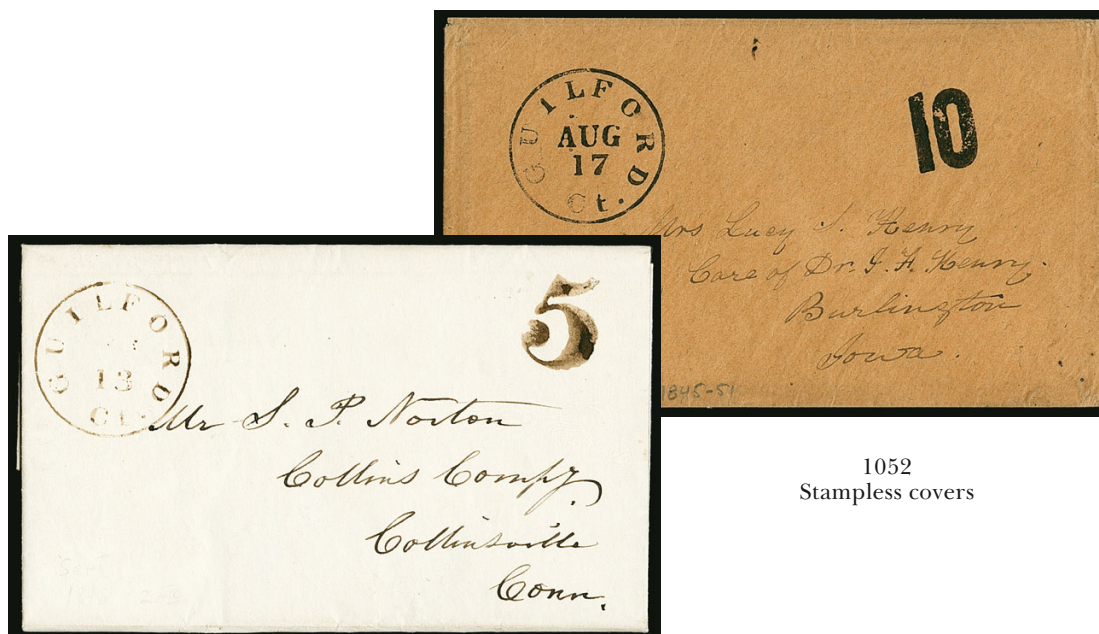 GUILFORD
AUG
17
Ct.
10
Mrs Lucy S. Henry
Care of Dr. J. H. Henry.
Burlington
Iowa.
1845-51
GUILFORD
13
Ct.
5
Mr S. P. Norton
Collins Compy.
Collinsville
Conn.
1052
Stampless covers